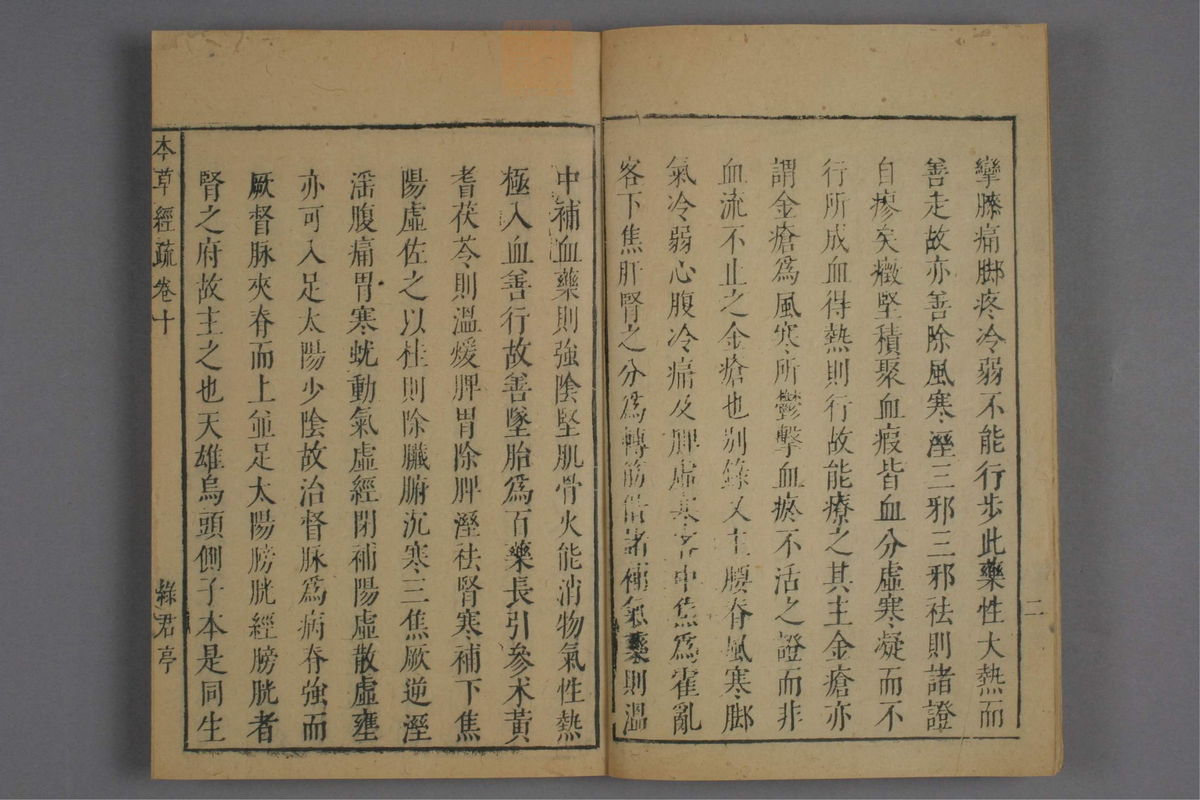 二
攣膝痛脚疼冷弱不能行步此藥性大熱而
善走故亦善除風寒溼三邪三邪祛則諸證
自瘳矣癥堅積聚血瘕皆血分虛寒凝而不
行所成血得熱則行故能療之其主金瘡亦
謂金瘡爲風寒所鬱擊血瘀不活之證而非
血流不止之金瘡也別錄又主腰脊風寒脚
氣冷弱心腹冷痛及脾虛寒客中焦爲霍亂
客下焦肝腎之分爲轉筋借諸補氣藥則溫
中補血藥則強陰堅肌骨火能消物氣性熱
極入血善行故善墜胎爲百藥長引參朮黃
耆茯苓則溫煖脾胃除脾溼祛腎寒補下焦
陽虛佐之以桂則除臟腑沉寒三焦厥逆溼
滛腹痛胃寒蚘動氣虛經閉補陽虛散虛壅
亦可入足太陽少陰故治督脉爲病脊強而
厥督脉夾脊而上並足太陽膀胱經膀胱者
腎之府故主之也天雄烏頭側子本是同生
本草經疏卷十
綠君亭